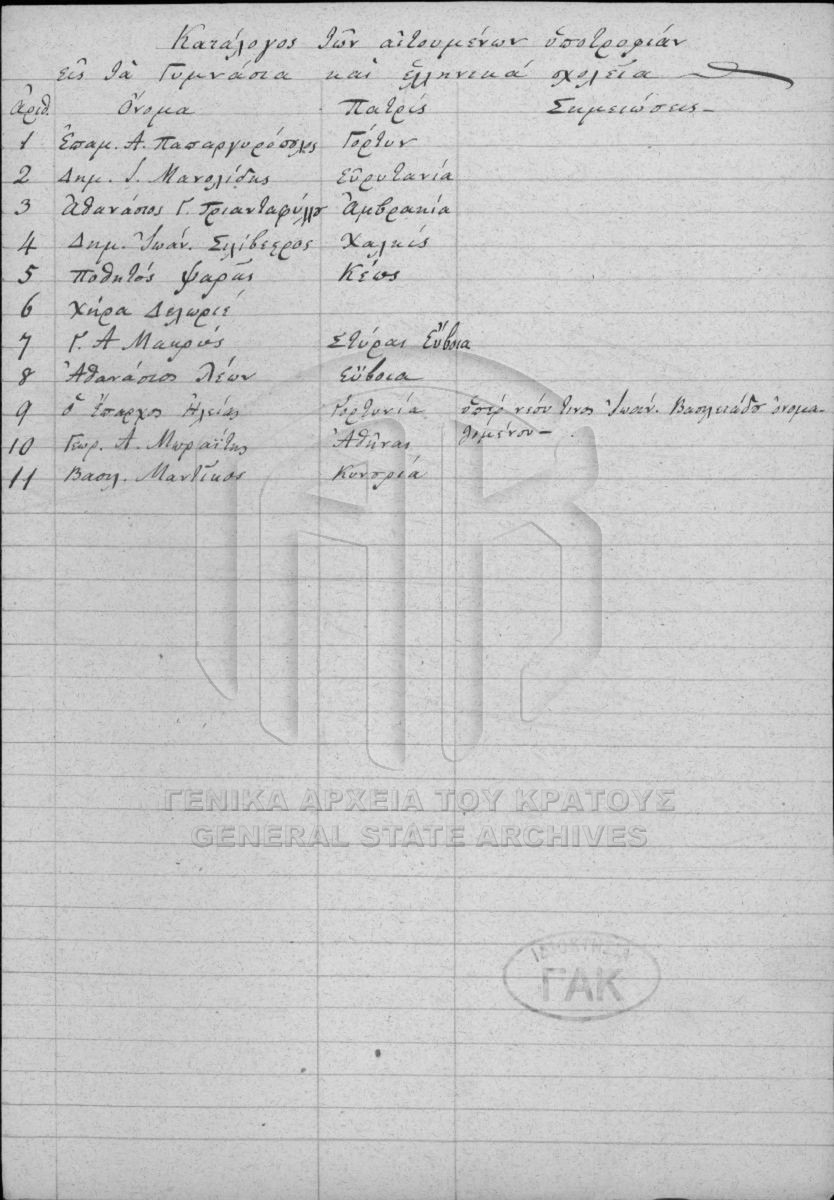 Κατάλογος τῶν αἰτουμένων ὑποτροφίαν
εἰς τὰ Γυμνάσια καὶ ἑλληνικά σχολεῖα
Ἀριθ. Ὄνομα Πατρίς Σημειώσεις
1 Ἐπαμ. Α. Παπαργυρόπουλος Γόρτυν
2 Δημ. Ι. Μανολίδης Εὐρυτανία
3 Ἀθανάσιος Γ. Τριανταφύλλου Ἀμβρακία
4 Δημ. Ἰωάν. Σιλίβεςρος Χαλκίς
5 Ποθητός Ψαρᾶς Κέως
6 Χήρα Δελωριέ
7 Γ. Α Μακρυς Στύραι Εὔβοια
8 Ἀθανάσιος Λέων Εὔβοια
9 ὁ Ἔπαρχος Ἠλείας Γορτυνία ὑπέρ νέου τινος Ἰωάν. Βασιλειάδου ὀνομα-
ζομένου
10 Γεωρ. Α. Μωραΐτης Ἀθῆναι
11 Βασιλ. Μαντίκος
ΓΕΝΙΚΑ ΑΡΧΕΙΑ ΤΟΥ ΚΡΑΤΟΥΣ
GENERAL STATE ARCHIVES
ΙΔΙΟΚΤΗΣΙΑ
ΓΑΚ